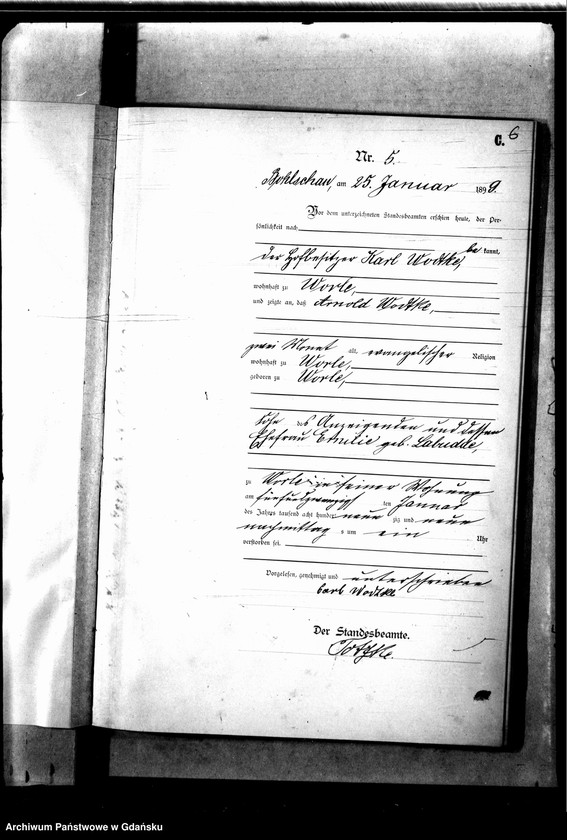 C. 6
Nr. 5.
Bohlschau, am 25. Januar 1899.
Vor dem unterzeichneten Standesbeamten erschien heute, der Per-
sönlichkeit nach
be kannt,
der Hofbesitzer Karl Wodtke,
wohnhaft zu Worle,
und zeigte an, daß Arnold Wodtke,
zwei Monat alt, evangelischer Religion
wohnhaft zu Worle,
geboren zu Worle,
Sohn des Anzeigenden und dessen
Ehefrau Emilie geb. Labudde,
zu Worle in seiner Wohnung
am fünfundzwanzigsten Januar
des Jahres tausend acht hundert neunzig und neun
nachmittags um ein Uhr
verstorben sei.
Vorgelesen, genehmigt und unterschrieben
Carl Wodtke
Der Standesbeamte.
Archiwum Państwowe w Gdańsku